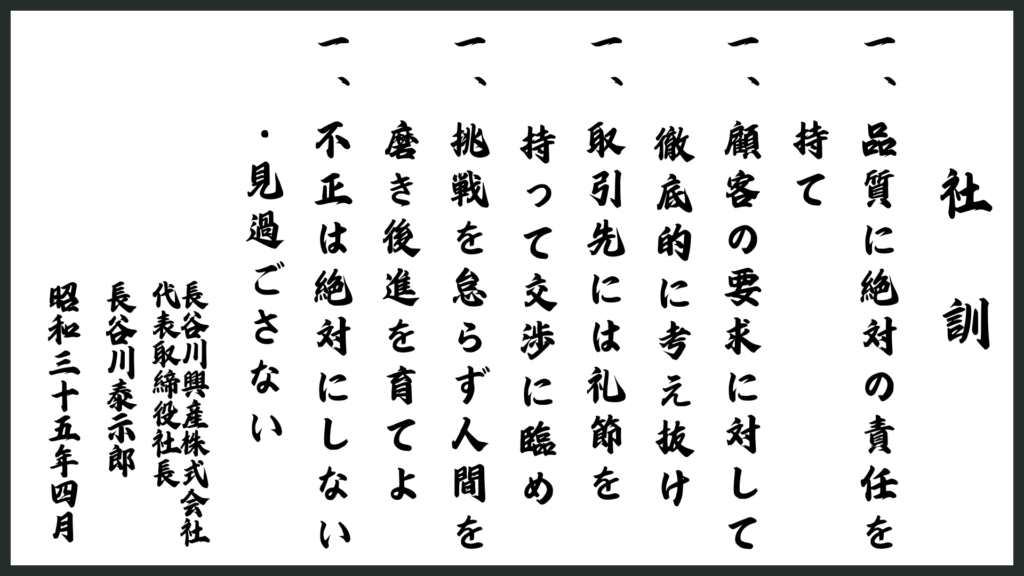 社訓
一、品質に絶対の責任を
持て
一、顧客の要求に対して
徹底的に考え抜け
一、取引先には礼節を
持って交渉に臨め
一、挑戦を怠らず人間を
磨き後進を育てよ
一、不正は絶対にしない
・見過ごさない
長谷川興産株式会社
代表取締役社長
長谷川泰示郎
昭和三十五年四月